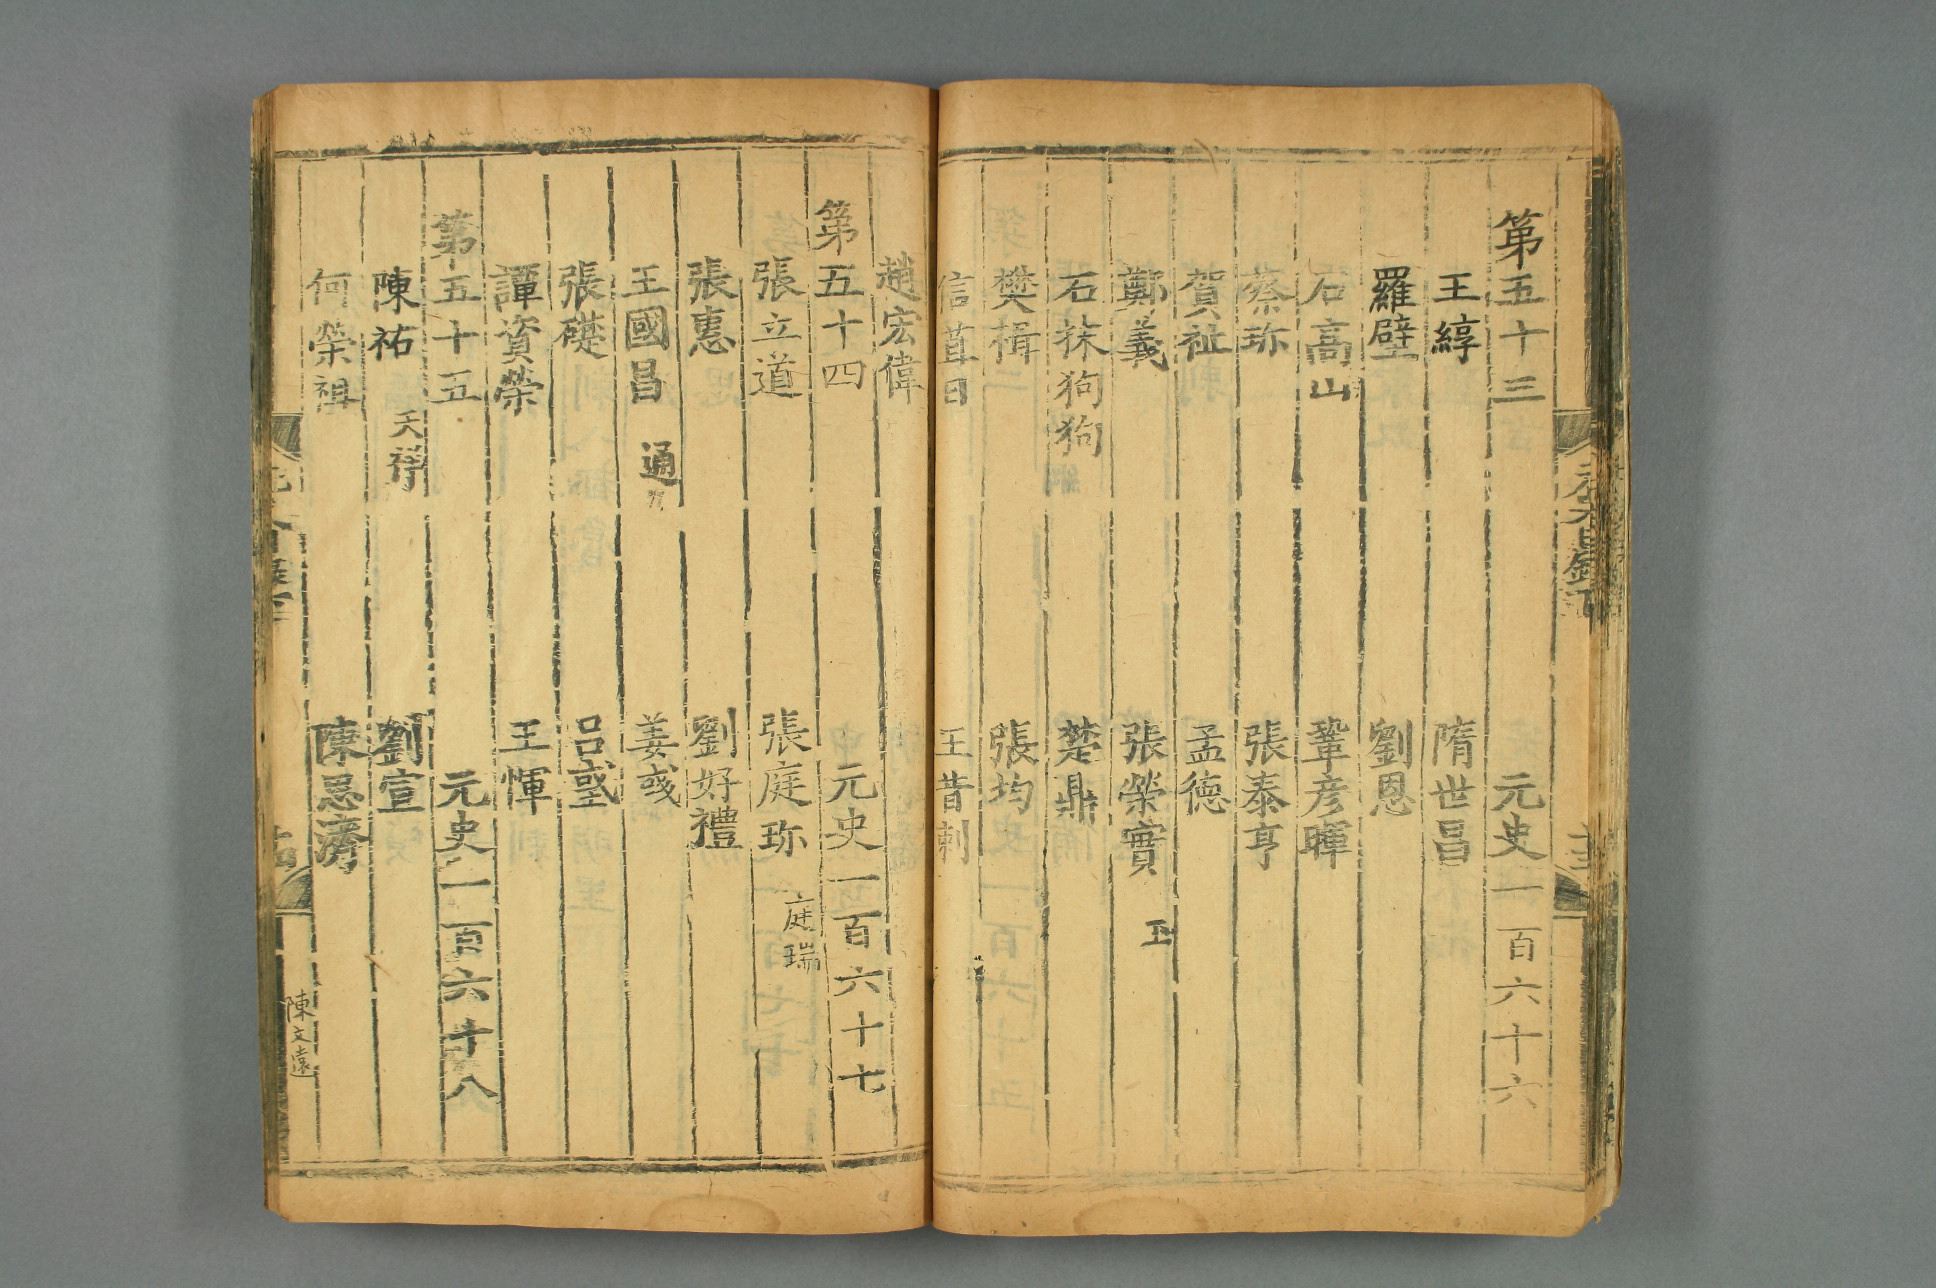 第五十三 元史一百六十六
王綧 隋世昌
羅璧 劉恩
石高山 鞏彥暉
蔡珍 張泰亨
賀祉 孟德
鄭義 張榮實 玉
石抹狗狗 楚鼎
樊楫 張均
信苴日 王昔剌
趙宏偉
第五十四 元史一百六十七
張立道 張庭珍 庭瑞
張惠 劉好禮
王國昌 通 姜彧
張礎 呂㦛
譚資榮 王惲
第五十五 元史一百六十八
陳祐 天祥 劉宣
何榮祖 陳思濟
陳文遠